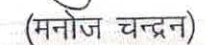 (मनोज चन्द्रन)